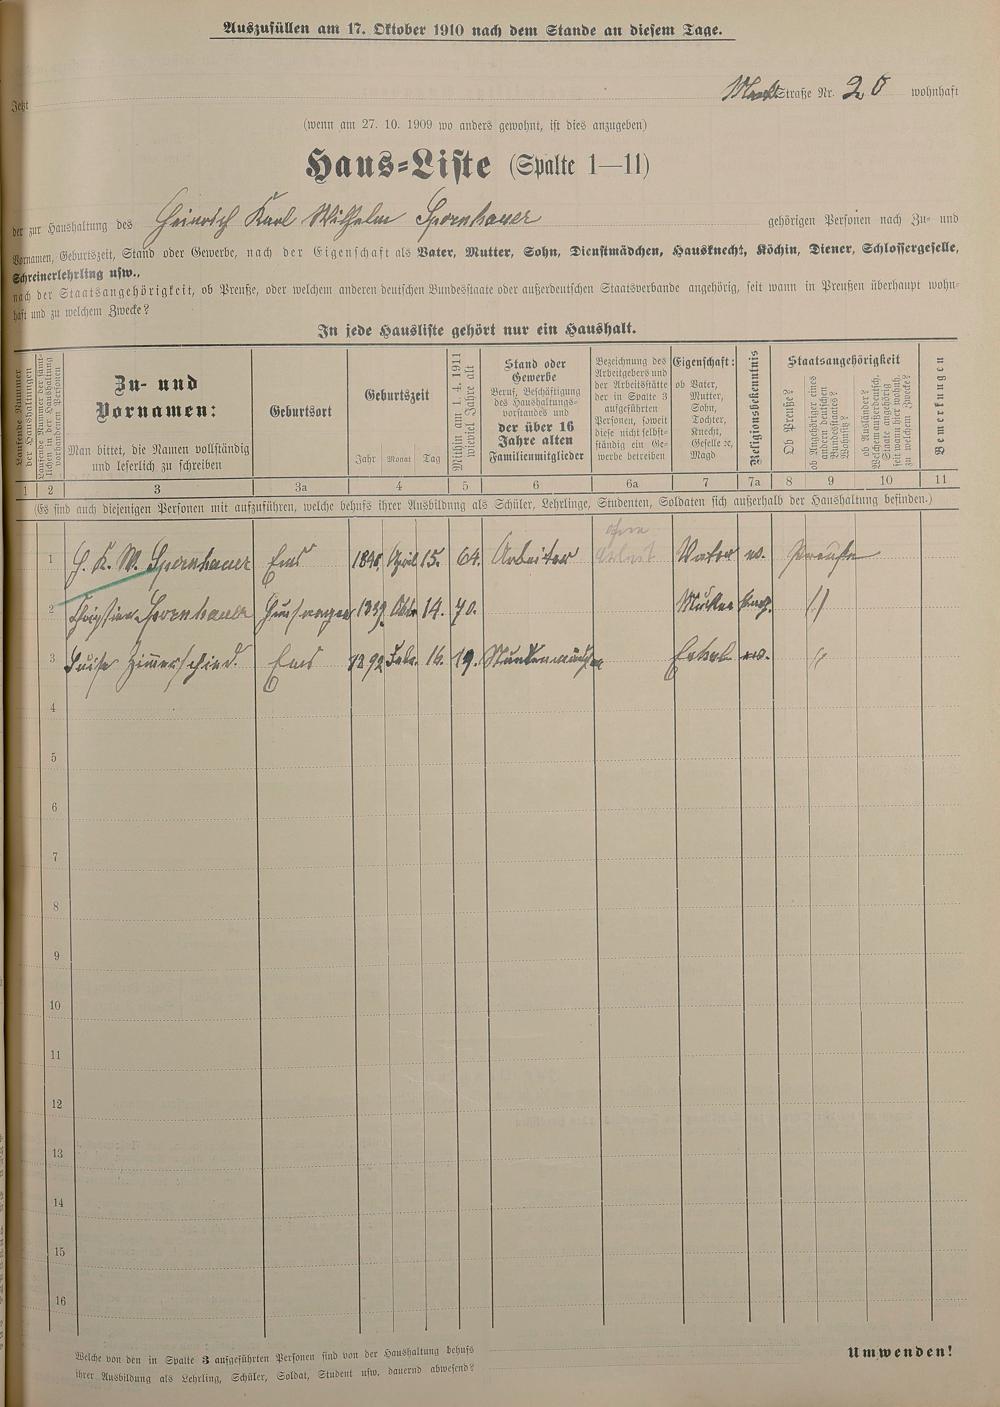 Auszufüllen am 17. Oktober 1910 nach dem Stande an diesem Tage.
Jetzt Straße Nr. 20 wohnhaft
(wenn am 27. 10. 1909 wo anders gewohnt, ist dies anzugeben)
Haus-Liste (Spalte 1—11)
der zur Haushaltung des Heinrich Karl Wilhelm Spornhauer gehörigen Personen nach Zu- und
Vornamen, Geburtszeit, Stand oder Gewerbe, nach der Eigenschaft als Vater, Mutter, Sohn, Dienstmädchen, Hausknecht, Köchin, Diener, Schlossergeselle,
Schreinerlehrling usw.,
nach der Staatsangehörigkeit, ob Preuße, oder welchem anderen deutschen Bundesstaate oder außerdeutschen Staatsverbande angehörig, seit wann in Preußen überhaupt wohn-
haft und zu welchem Zwecke?
In jede Hausliste gehört nur ein Haushalt.
Laufende Nummer der Haushaltungen
Laufende Nummer der sämt-
lichen in der Haushaltung
vorhandenen Personen
Zu- und
Vornamen:
Man bittet, die Namen vollständig
und leserlich zu schreiben
Geburtsort
Geburtszeit
Jahr Monat Tag
Mithin am 1. 4. 1911
wieviel Jahre alt
Stand oder
Gewerbe
Beruf, Beschäftigung
des Haushaltungs-
vorstandes und
der über 16
Jahre alten
Familienmitglieder
Bezeichnung des
Arbeitgebers und
der Arbeitsstätte
der in Spalte 3
aufgeführten
Personen, soweit
diese nicht selbst-
ständig ein Ge-
werbe betreiben
Eigenschaft:
ob Vater,
Mutter,
Sohn,
Tochter,
Knecht,
Geselle ec,
Magd
Religionsbekenntnis
Staatsangehörigkeit
Ob Preuße?
ob Angehöriger eines
andern deutschen
Bundesstaates?
Wohnsitz?
ob Ausländer?
Welchem außerdeutsch.
Staate angehörig
seit wann hier wohnh.
zu welchem Zwecke?
Bemerkungen
1 2 3 3a 4 5 6 6a 7 7a 8 9 10 11
(Es sind auch diejenigen Personen mit aufzuführen, welche behufs ihrer Ausbildung als Schüler, Lehrlinge, Studenten, Soldaten sich außerhalb der Haushaltung befinden.)
ohne
1 H. K. W. Spornhauer Ems April 15. 64. Arbeiter Arbeit Vater ev. Preuße
2 Spornhauer 1839 Okt. 14. 70. Mutter "
3 Luise Zimmerschied. Ems 1892 Febr. 16. 19. ev. "
4
5
6
7
8
9
10
11
12
13
14
15
16
Welche von den in Spalte 3 aufgeführten Personen sind von der Haushaltung behufs
ihrer Ausbildung als Lehrling, Schüler, Soldat, Student usw. dauernd abwesend?
Umwenden!